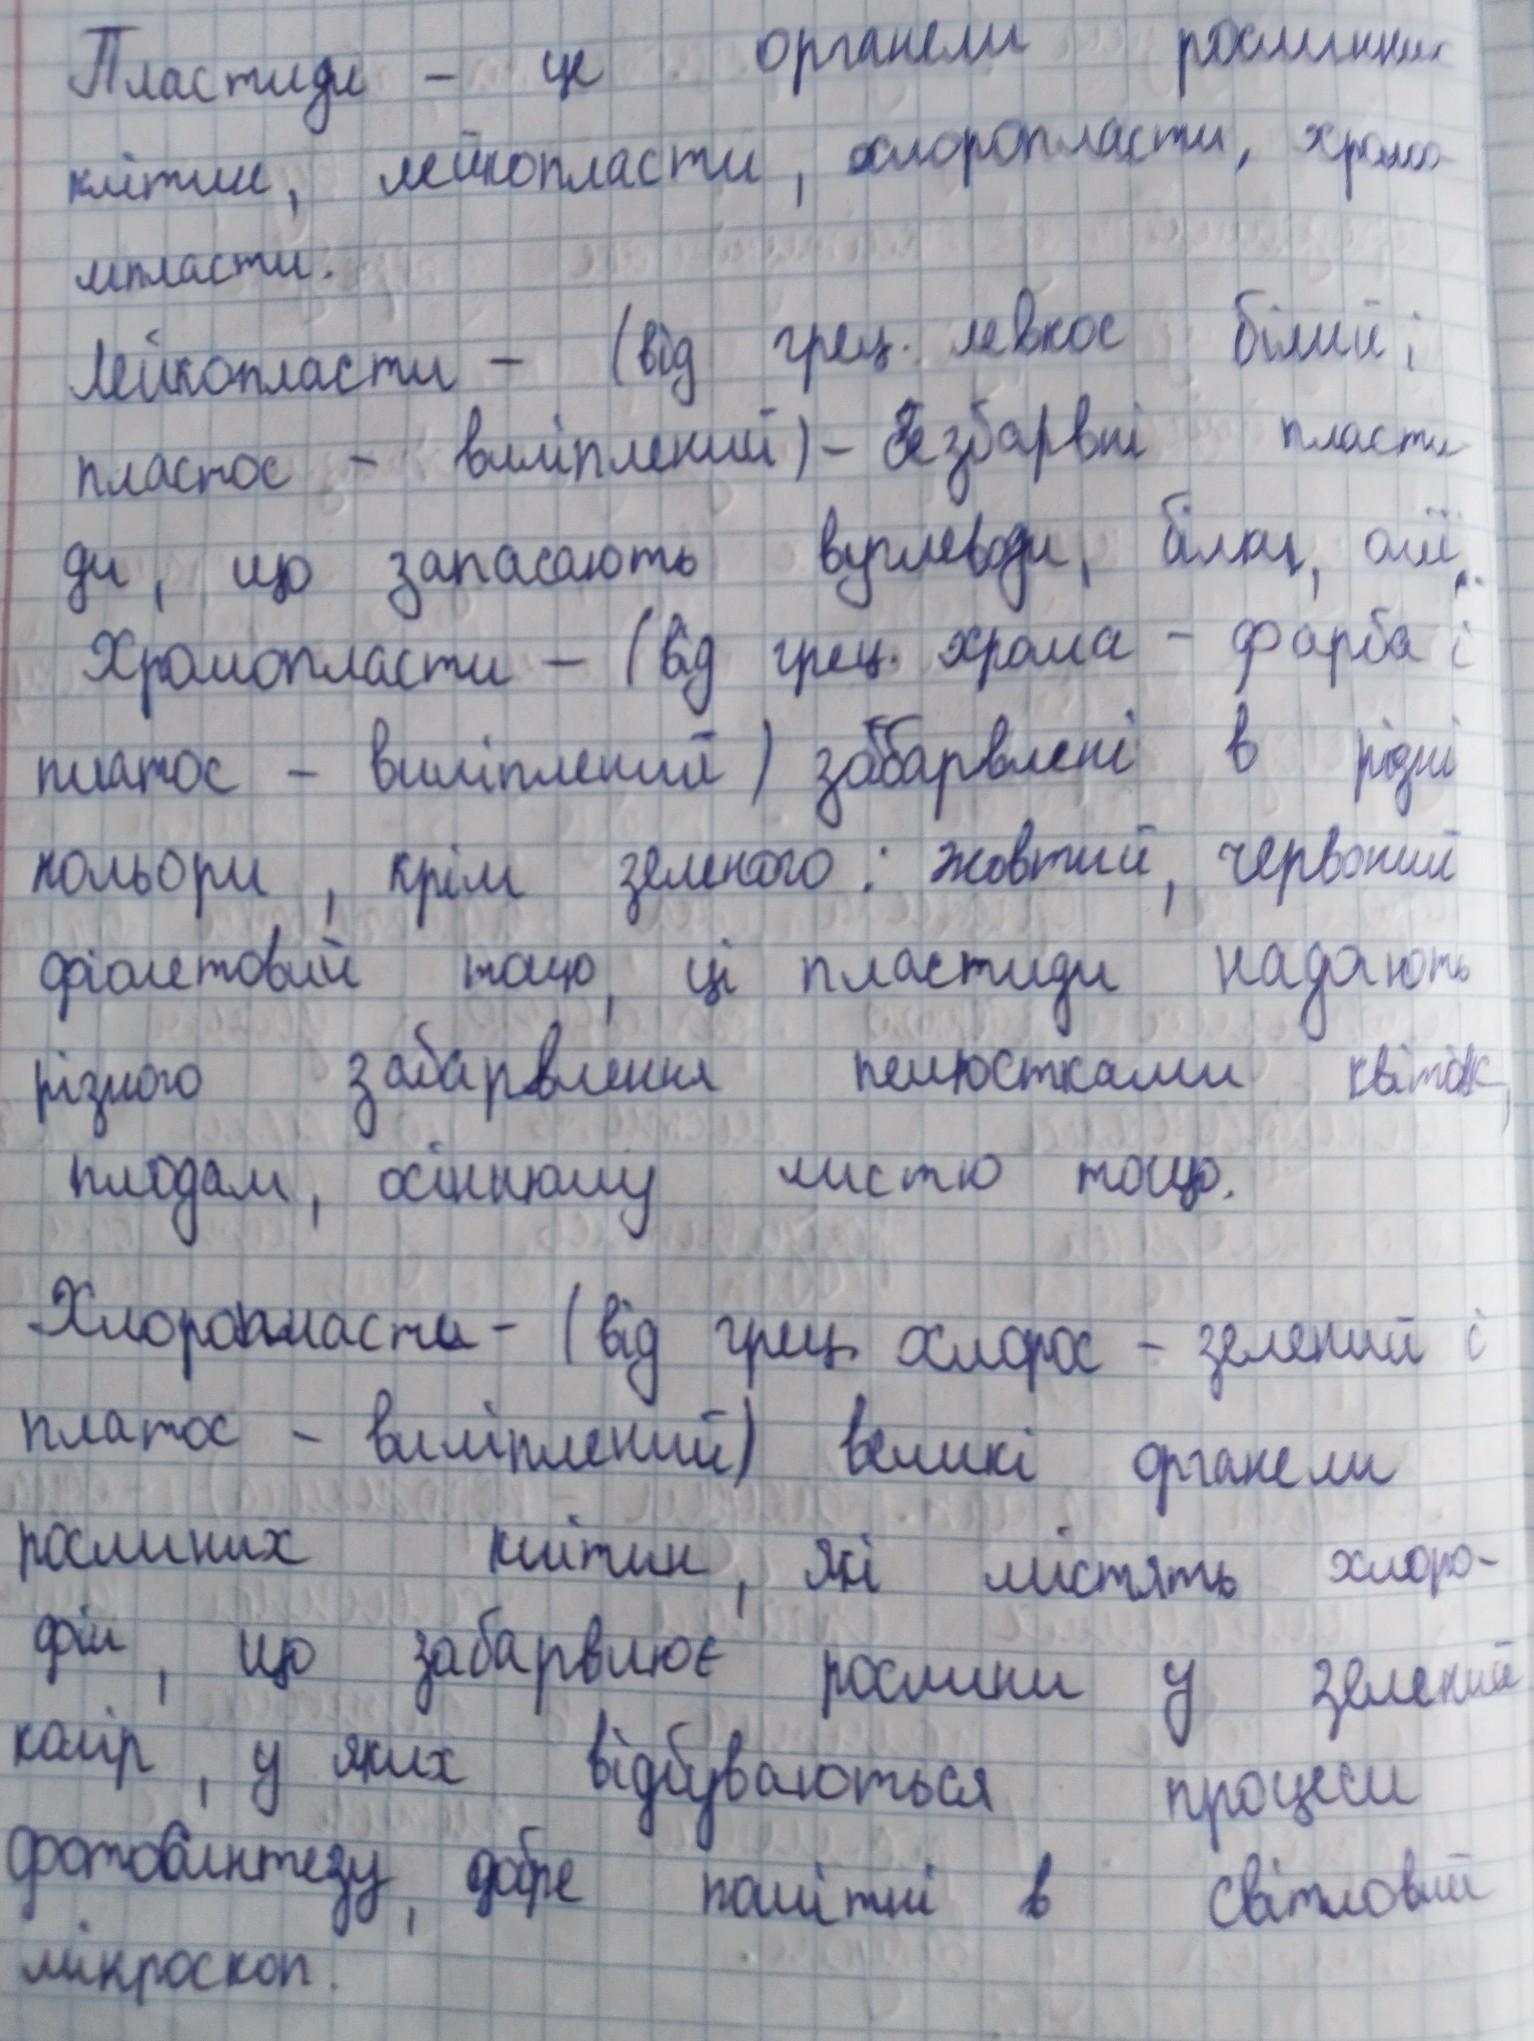 Пластиди – це органели рослинних
клітин, лейкопласти, хлоропласти, хромо-
мпласти.
Лейкопласти – (від грец. левкос білий і
пластос – виліплений) – безбарвні пласти
ди, що запасають вуглеводи, білки, олії.
Хромопласти – (від грец. храма – фарба і
платос – виліплений) забарвлені в різні
кольори, крім зеленого: жовтий, червоний
фіолетовий тощо, ці пластиди надають
різного забарвлення пелюстками квіток,
плодам, осінньому листю тощо.
Хлоропласти – (від грец. хлорос – зелений і
платос – виліплений) великі органели
рослиних клітин, які містять хлоро-
філ, що забарвлює рослини у зелений
колір, у яких відбуваються процеси
фотосинтезу, добре помітні в світловий
мікроскоп.